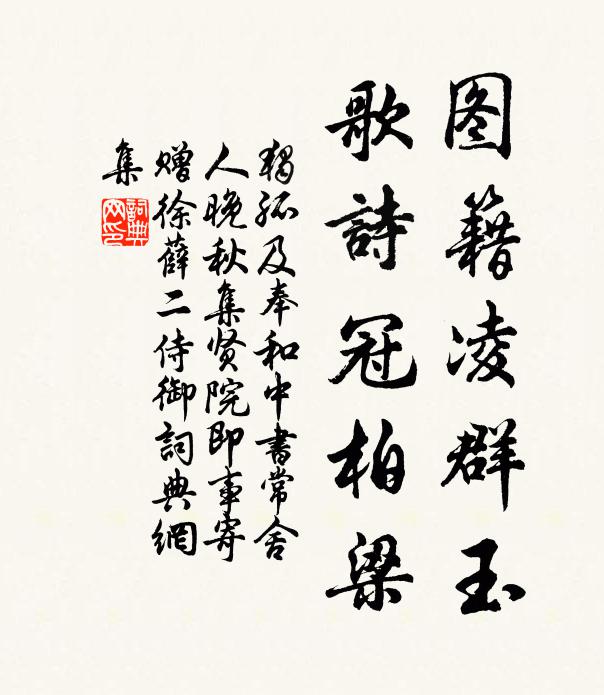 图籍凌群玉
歌詩冠柏梁
獨孤及奉和中書常舍
人晚秋集贤院即事寄
赠徐薛二侍御詞典網
集
詞典网印